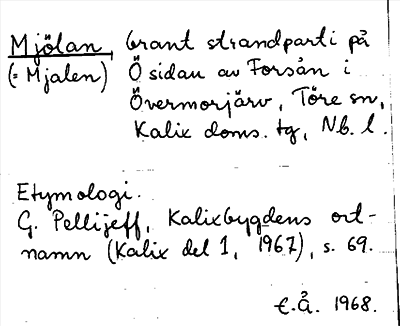 Mjölan, brant strandparti på
(= Mjalen) Ö sidan av Forsån i
Övermorjärv, Töre sn,
Kalix doms. tg, Nb. l.
Etymologi.
G. Pellijeff, Kalixbygdens ort-
namn (Kalix del 1, 1967), s. 69.
E.Å. 1968.